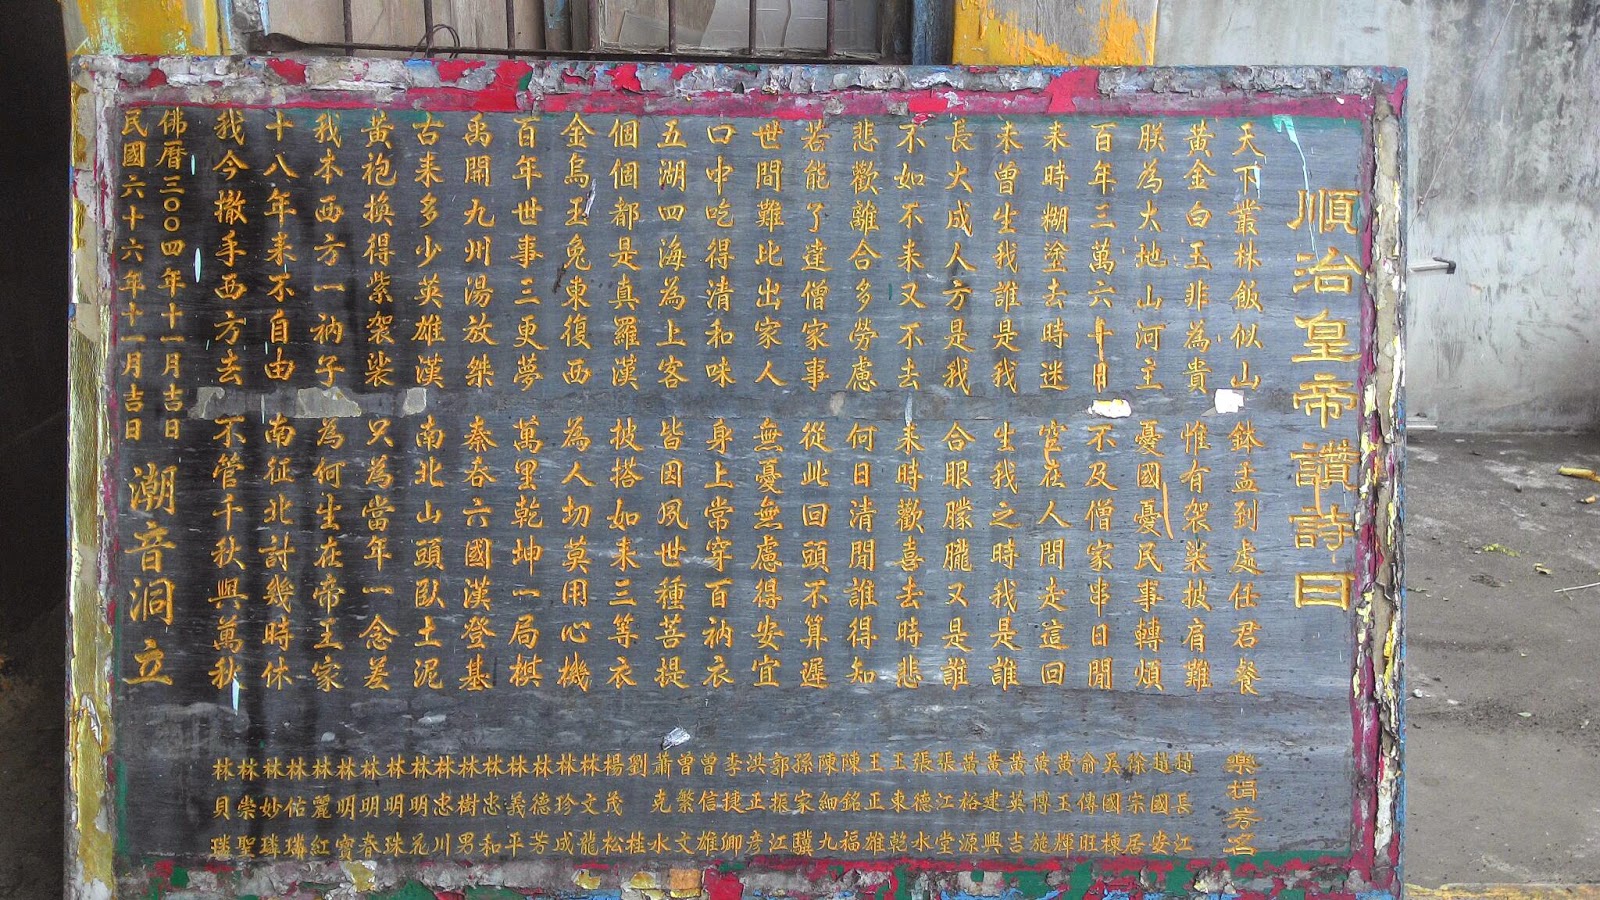 順治皇帝讚詩曰
天下叢林飯似山 鉢盂到處任君餐
黃金白玉非為貴 惟有袈裟披肩難
朕為大地山河主 憂國憂民事轉煩
百年三萬六千日 不及僧家串日閒
來時糊塗去時迷 空在人間走這回
未曾生我誰是我 生我之時我是誰
長大成人方是我 合眼朦朧又是誰
不如不來又不去 來時歡喜去時悲
悲歡離合多勞慮 何日清閒誰得知
若能了達僧家事 從此回頭不算遲
世間難比出家人 無憂無慮得安宜
口中吃得清和味 身上常穿百衲衣
五湖四海為上客 皆因夙世種菩提
個個都是真羅漢 披搭如來三等衣
金烏玉兔東復西 為人切莫用心機
百年世事三更夢 萬里乾坤一局棋
禹開九州湯放桀 秦吞六國漢登基
古來多少英雄漢 南北山頭臥土泥
黃袍換得紫袈裟 只為當年一念差
我本西方一衲子 為何生在帝王家
十八年來不自由 南征北討幾時休
我今撤手西方去 不管千秋與萬秋
佛曆三〇〇四年十一月吉日
民國六十六年十一月吉日
潮音洞立
樂捐芳名
趙長江
趙國安
徐宗居
吳國棟
俞傳旺
黃玉輝
黃博施
黃英吉
黃建興
黃裕源
張江堂
張德水
王東乾
王正雄
陳銘福
陳細九
孫家驥
郭振江
洪正彥
李捷卿
曾信雄
曾繁文
蕭克水
劉桂
楊茂松
林文龍
林珍成
林德芳
林義平
林忠和
林樹男
林忠川
林明花
林明珠
林明春
林明寶
林麗紅
林佑璘
林妙璘
林崇聖
林貝璘